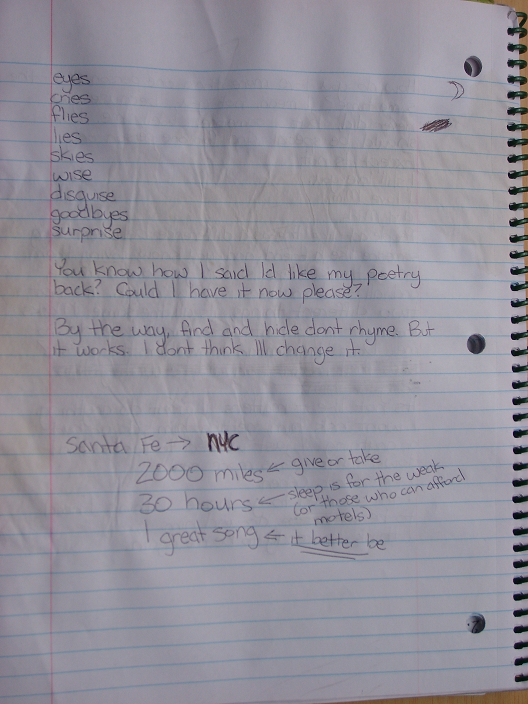 eyes
cries
flies
lies
skies
wise
disguise
goodbyes
surprise
You know how I said Id like my poetry
back? Could I have it now please?
By the way, find and hide dont rhyme. But
it works. I dont think Ill change it.
Santa Fe → NYC
2000 miles ← give or take
30 hours ← sleep is for the weak
(or those who can afford
motels)
1 great song ← it better be